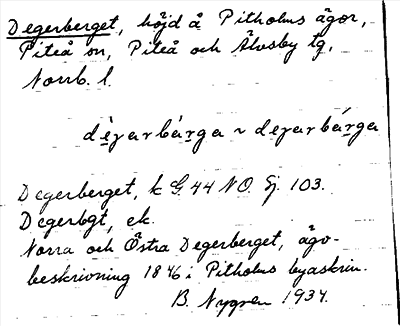 Degerberget, höjd å Pitholms ägor,
Piteå sn, Piteå och Älvsby tg,
Norrb. l.
dè̱γarbá̱rga ~ deγarbá̱rga
Degerberget, k G. 44 NO Ej 103.
Degerbgt, ek.
Norra och Östra Degerberget, ägo-
beskrivning 1846 i Pitholms byaskrin.
B. Nygren 1934.